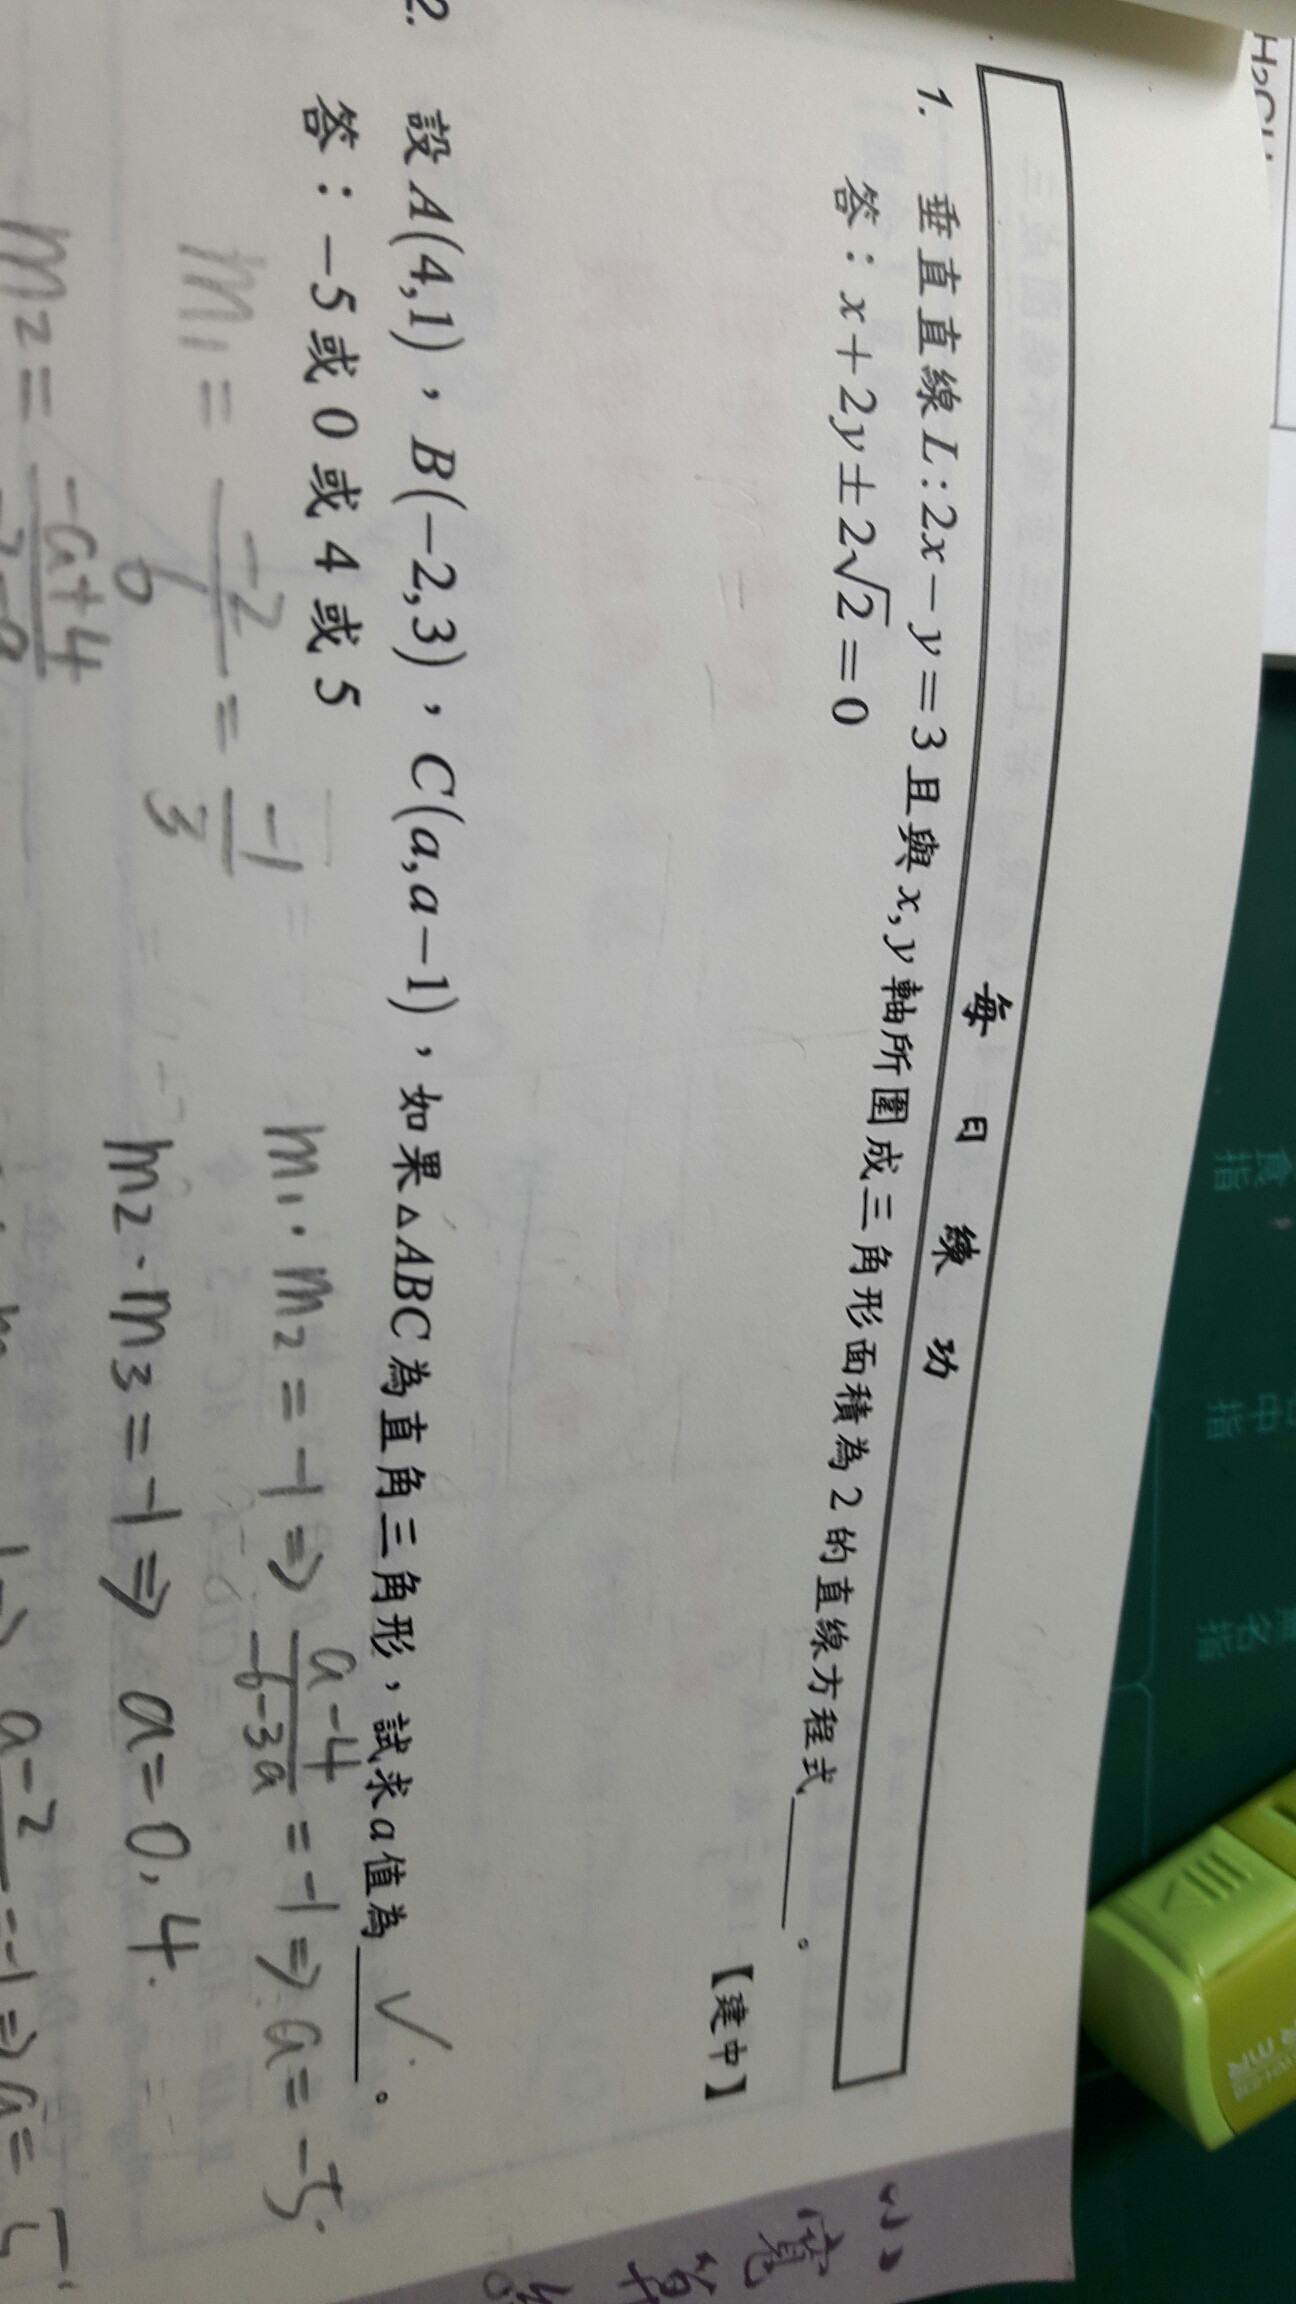 每日練功
1. 垂直直線L:2x-y=3且與x,y軸所圍成三角形面積為2的直線方程式____。
答：x+2y±2√2=0
【建中】
2. 設A(4,1)，B(-2,3)，C(a,a-1)，如果△ABC為直角三角形，試求a值為____。 ✓
答：-5或0或4或5
m₁ = -2/6 = -1/3
m₁·m₂=-1⇒ (a-4)/(-6-3a) = -1⇒a=-5.
m₂ = (-a+4)/
m₂·m₃=-1⇒ a=0,4.
a-2
=-1⇒a=
食指
中指
名指
小
寬
算